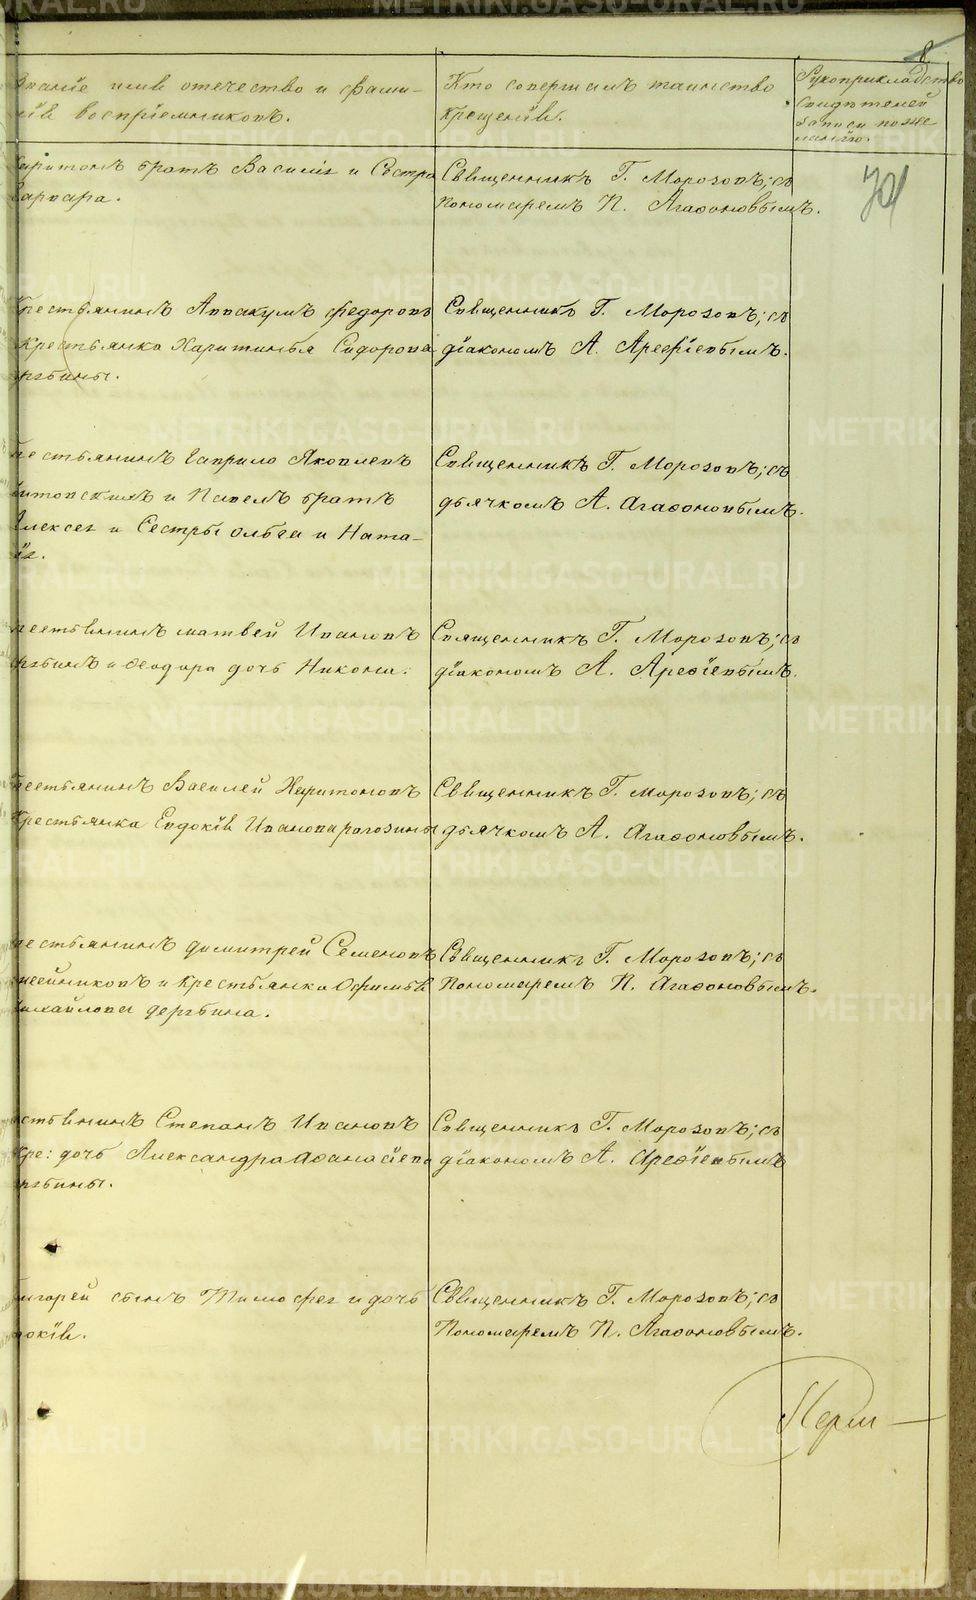 8
Званіе имя отечество и фами-
лія воспріемниковъ.
Кто совершалъ таинство
крещенія.
Рукоприкладство
свидѣтелей
записи по же
ланію.
Харитонъ братъ Василіе и Сестра
Варвара.
Священникъ Г. Морозовъ; съ
пономаремъ П. Агаѳоновымъ.
Крестьянинъ Аввакумъ Федоровъ
Крестьянка Харитинья Сидорова
Священникъ Г. Морозовъ; съ
діакономъ А. Арефіевымъ.
Крестьянинъ Гаврило Яковлевъ
и Павелъ братъ
Алексее и Сестры Ольга и Ната-
Священникъ Г. Морозовъ; съ
дьячкомъ А. Агаѳоновымъ.
Крестьянинъ Матвей Ивановъ
и Ѳеодора дочь Никона.
Священникъ Г. Морозовъ; съ
діакономъ А. Ареѳіевымъ.
Крестьянинъ Василей Харитоновъ
Крестьянка Евдокія Иванова рогозины
Священникъ Г. Морозовъ; съ
дьячкомъ А. Агаѳоновымъ.
Крестьянинъ димитрей Семеновъ
и Крестьянка Офимья
Михайлова дерябина.
Священникъ Г. Морозовъ; съ
Пономаремъ П. Агаѳоновымъ.
Крестьянинъ Степанъ Ивановъ
Кре: дочь Александра Аѳанасіева
Священникъ Г. Морозовъ; съ
діакономъ А. Ареѳіевымъ
Григорей сынъ Тимофее и дочь
Священникъ Г. Морозовъ; съ
Пономаремъ П. Агаѳоновымъ.
METRIKI.GASO-URAL.RU